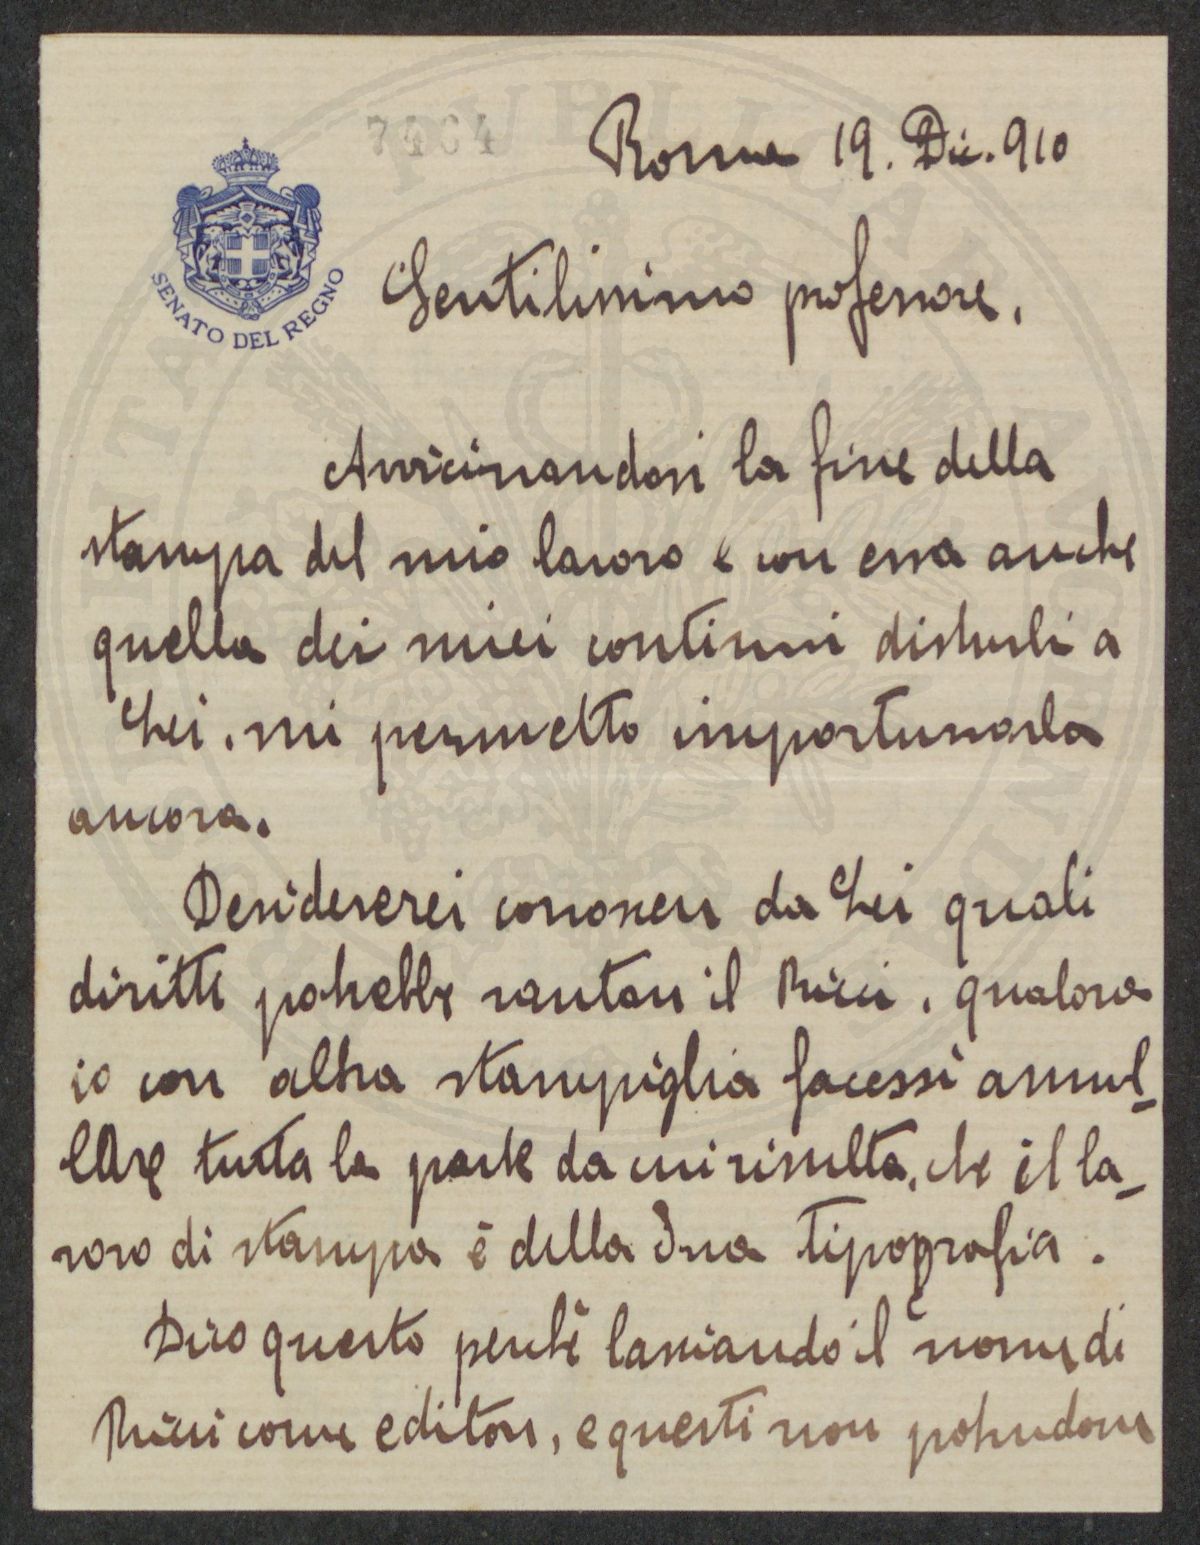 7464
Roma 19. Dic. 910
SENATO DEL REGNO
Gentilissimo professore,
Avvicinandosi la fine della
stampa del mio lavoro e con essa anche
quella dei miei continui disturbi a
Lei, mi permetto importunarla
ancora.
Desidererei conoscere da Lei quali
diritti potrebbe vantare il Ricci, qualora
io con altra stampiglia facessi annul-
lare tutta la parte da cui risulta, che il la-
voro di stampa è della Sua tipografia.
Dico questo perchè lasciando il nome di
Ricci come editore, e questi non potendone